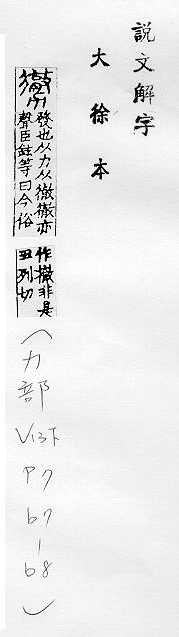 說文解字
大徐本
勶
發也从力从徹徹亦
聲臣鉉等曰今俗
作撤非是
丑列切
(力部 V13下 P7 b7-b8)